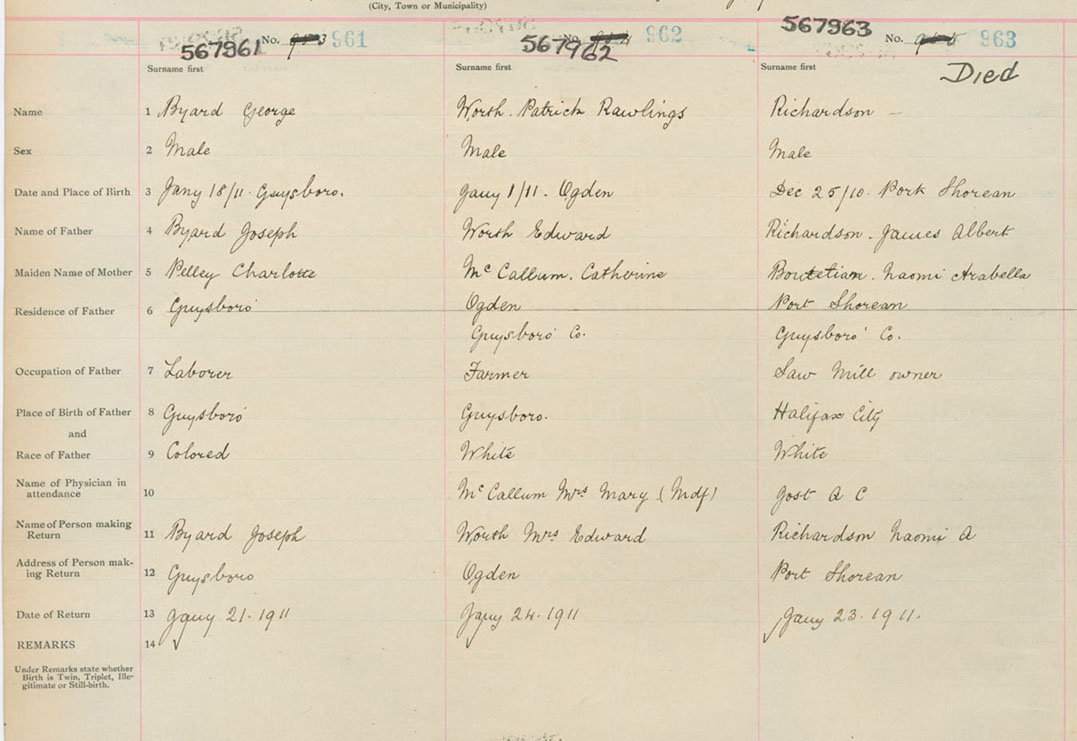 (City, Town or Municipality)
567961 No. 961 567962 No. 962 567963 No. 963
Surname first Surname first Surname first Died
Name 1 Byard George Worth. Patrick Rawlings Richardson —
Sex 2 Male Male Male
Date and Place of Birth 3 Jany 18/11. Guysboro. Jany 1/11. Ogden Dec 25/10. Port Shorean
Name of Father 4 Byard Joseph Worth Edward Richardson. James Albert
Maiden Name of Mother 5 Pelley Charlotte McCallum. Catherine Boutetian. Naomi Arabella
Residence of Father 6 Guysboro' Ogden Port Shorean
Guysboro' Co. Guysboro' Co.
Occupation of Father 7 Laborer Farmer Saw Mill owner
Place of Birth of Father 8 Guysboro' Guysboro. Halifax City
and
Race of Father 9 Colored White White
Name of Physician in
attendance 10 McCallum Mrs Mary (Mdf) Jost A C
Name of Person making
Return 11 Byard Joseph Worth Mrs Edward Richardson Naomi A
Address of Person mak-
ing Return 12 Guysboro Ogden Port Shorean
Date of Return 13 Jany 21. 1911 Jany 24. 1911 Jany 23. 1911.
REMARKS 14
Under Remarks state whether
Birth is Twin, Triplet, Ille-
gitimate or Still-birth.